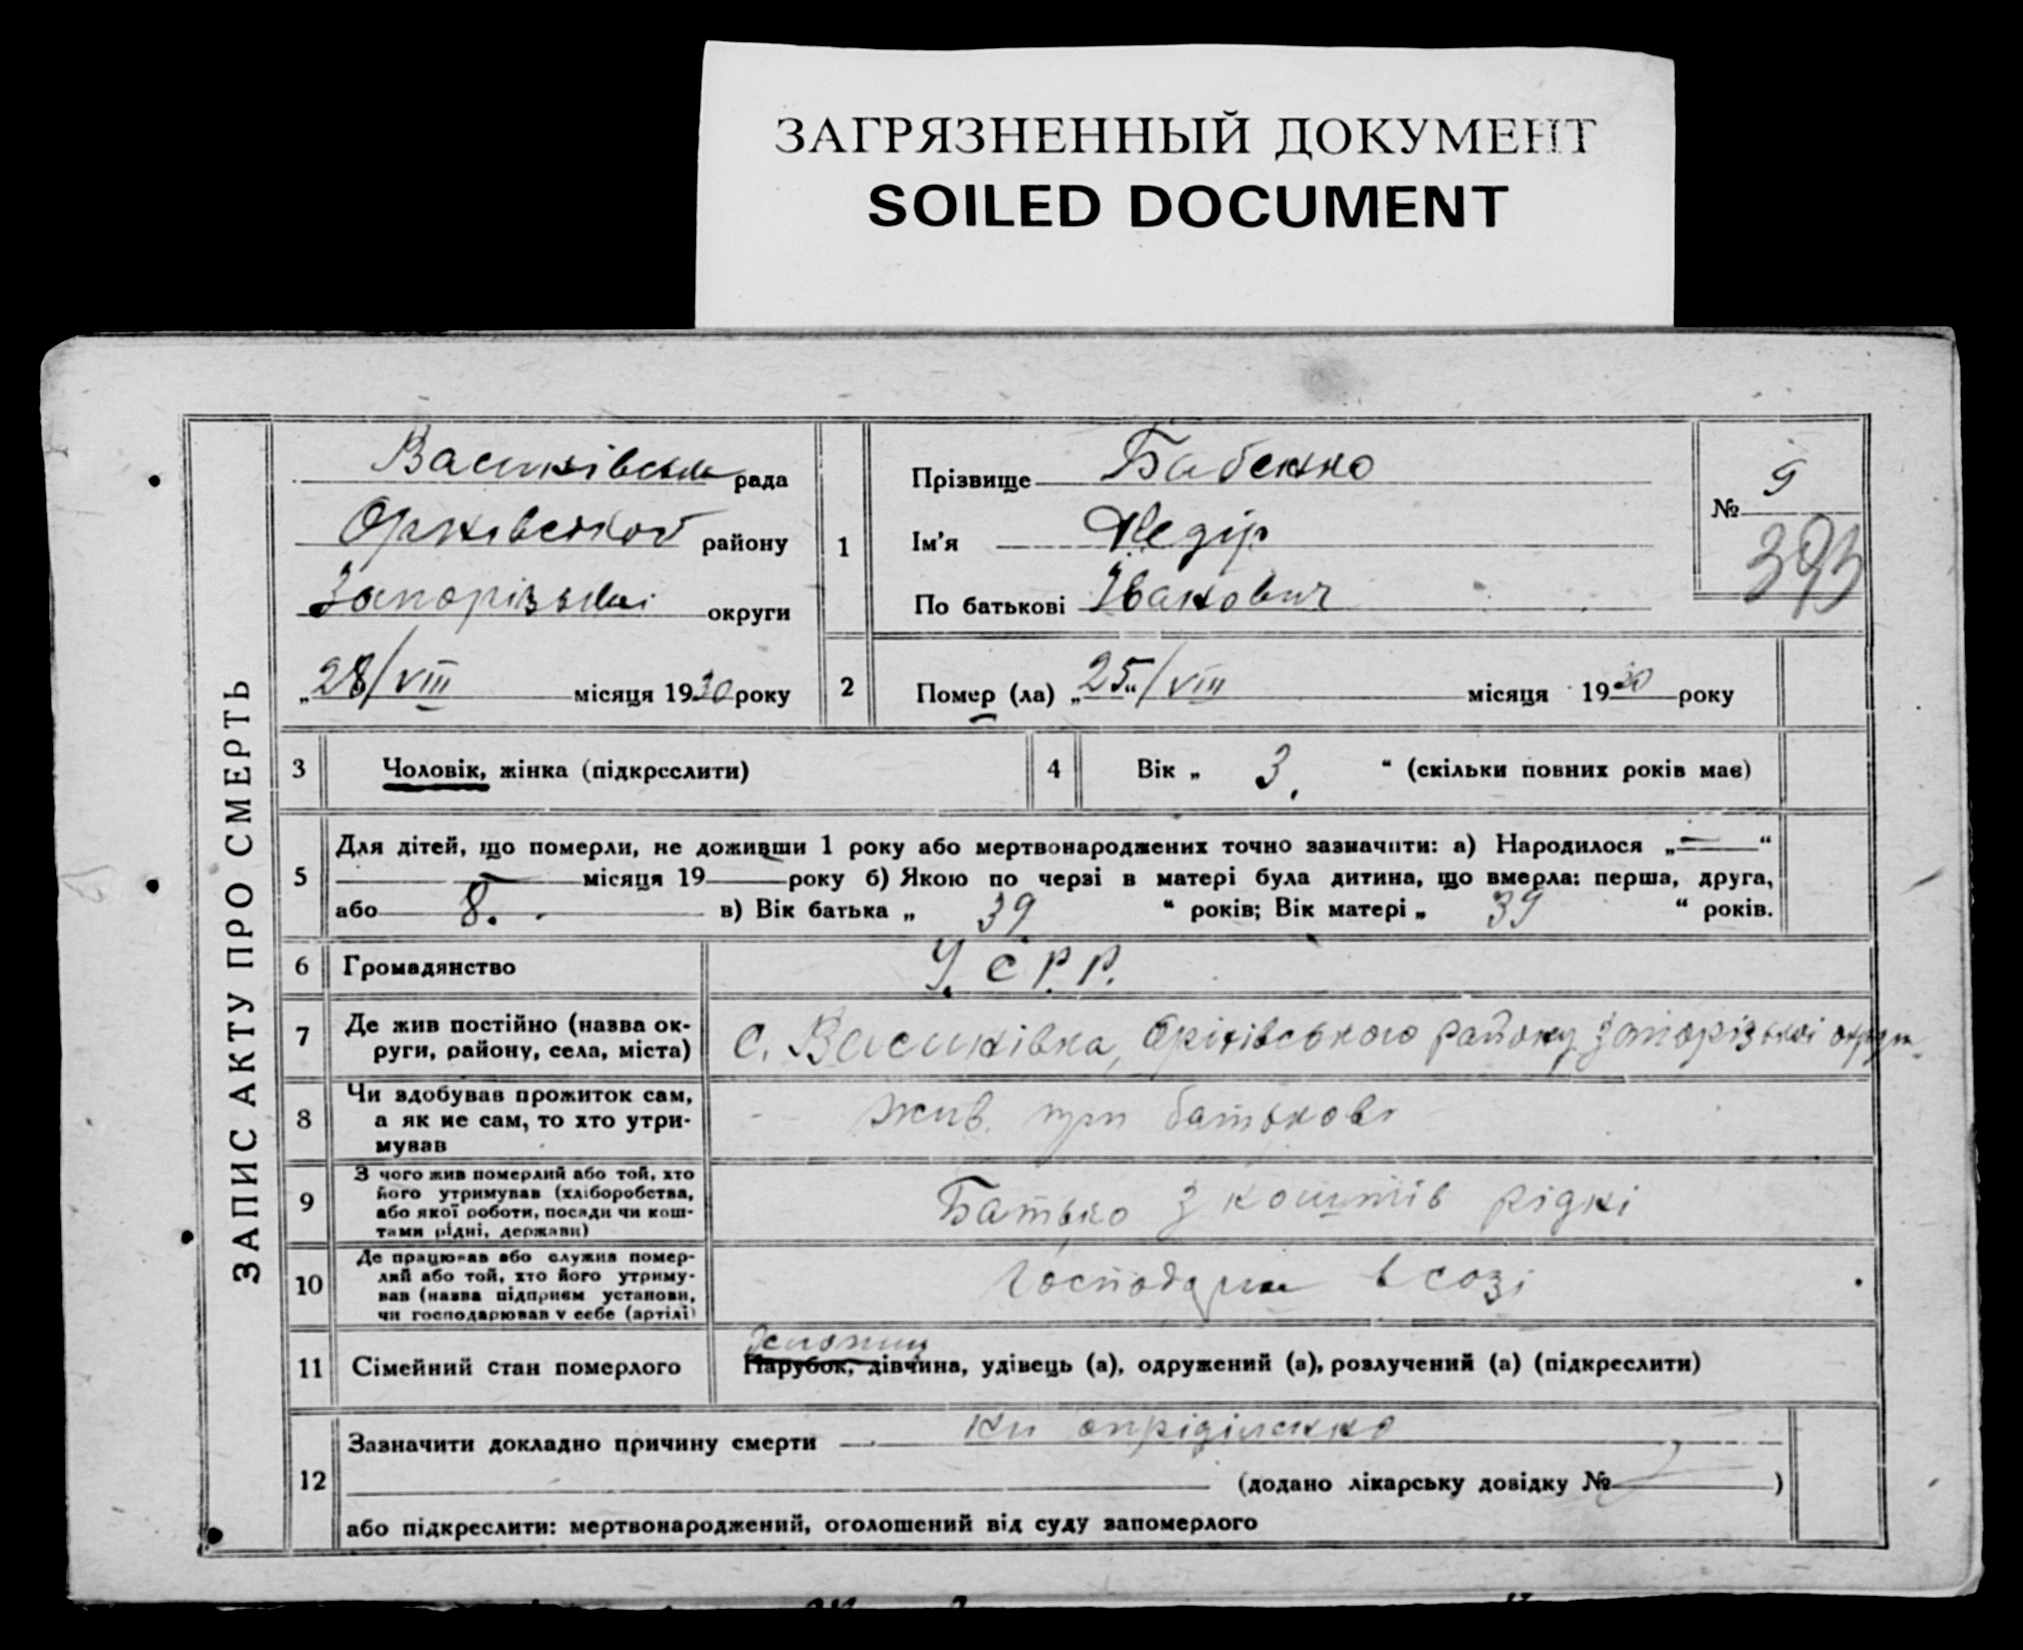 ЗАГРЯЗНЕННЫЙ ДОКУМЕНТ
SOILED DOCUMENT
ЗАПИС АКТУ ПРО СМЕРТЬ
рада
району
округи
„28/VIII місяця 1930 року
1
Прізвище Бабенко
Ім'я
По батькові Іванович
№ 9
393
2 Помер (ла) „25“/VIII місяця 1930 року
3 Чоловік, жінка (підкреслити)
4 Вік „ 3. “ (скільки повних років має)
5 Для дітей, що померли, не доживши 1 року або мертвонароджених точно зазначити: а) Народилося „ — “
місяця 19 року б) Якою по черзі в матері була дитина, що вмерла: перша, друга,
або 8. в) Вік батька „ 39 “ років; Вік матері „ 39 “ років.
6 Громадянство У.С.Р.Р.
7 Де жив постійно (назва ок-
руги, району, села, міста)
с. Васинівка, Оріхівського району Запорізької округи
8 Чи здобував прожиток сам,
а як не сам, то хто утри-
мував
жив при батькові
9 З чого жив померлий або той, хто
його утримував (хліборобства,
або якої роботи, посади чи кош-
тами рідні, держави)
Батько з коштів рідні
10 Де працював або служив помер-
лий або той, хто його утриму-
вав (назва підприєм установи,
чи господарював у себе (артілі)
в созі
11 Сімейний стан померлого
Парубок, дівчина, удівець (а), одружений (а), розлучений (а) (підкреслити)
12 Зазначити докладно причину смерти ни опріділенно
(додано лікарську довідку № )
або підкреслити: мертвонароджений, оголошений від суду запомерлого